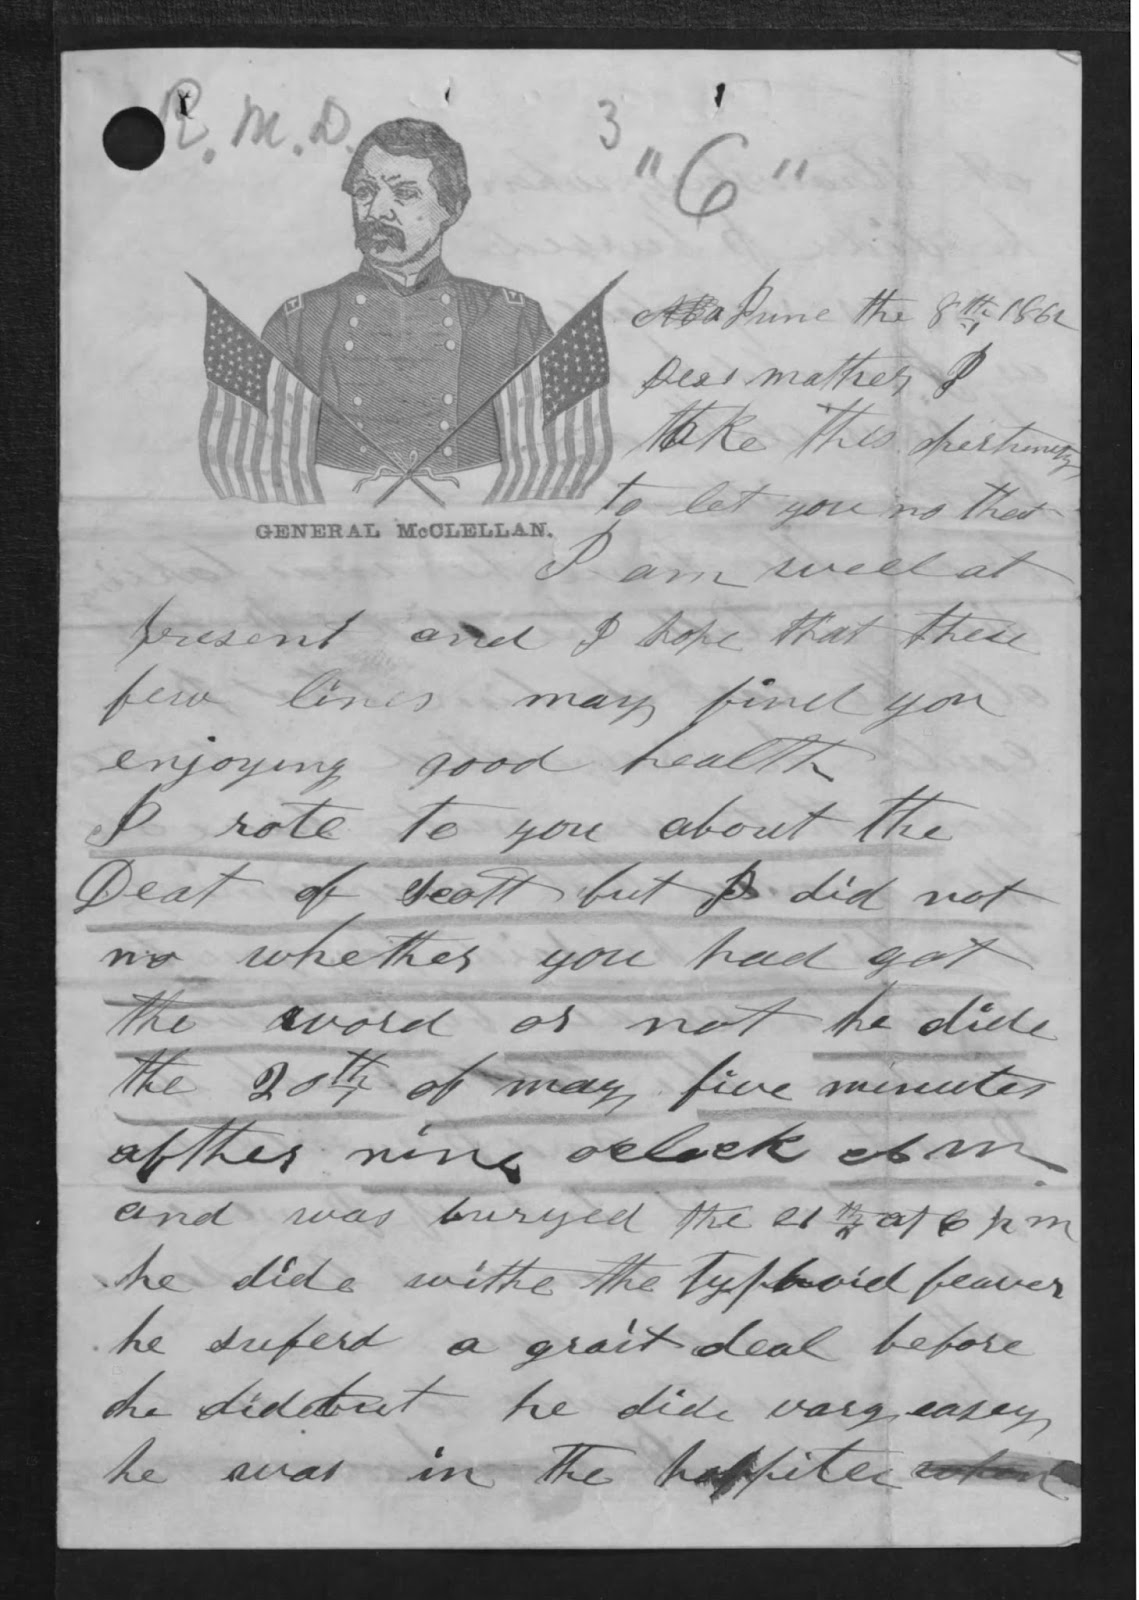 R. M. D.
3 "6"
June the 8th 1862
Dear mother I
take this opertunity
to let you no that
GENERAL McCLELLAN.
I am well at
present and I hope that these
few lines may find you
enjoying good health
I rote to you about the
Deat of Scott but I did not
no whether you had got
the word or not he dide
the 20th of may five minutes
afther nine oclock a m
and was buryed the 21th at 6 p m
he dide withe the typhoid feaver
he suferd a grait deal before
he dide but he dide vary easey
he was in the hospitee